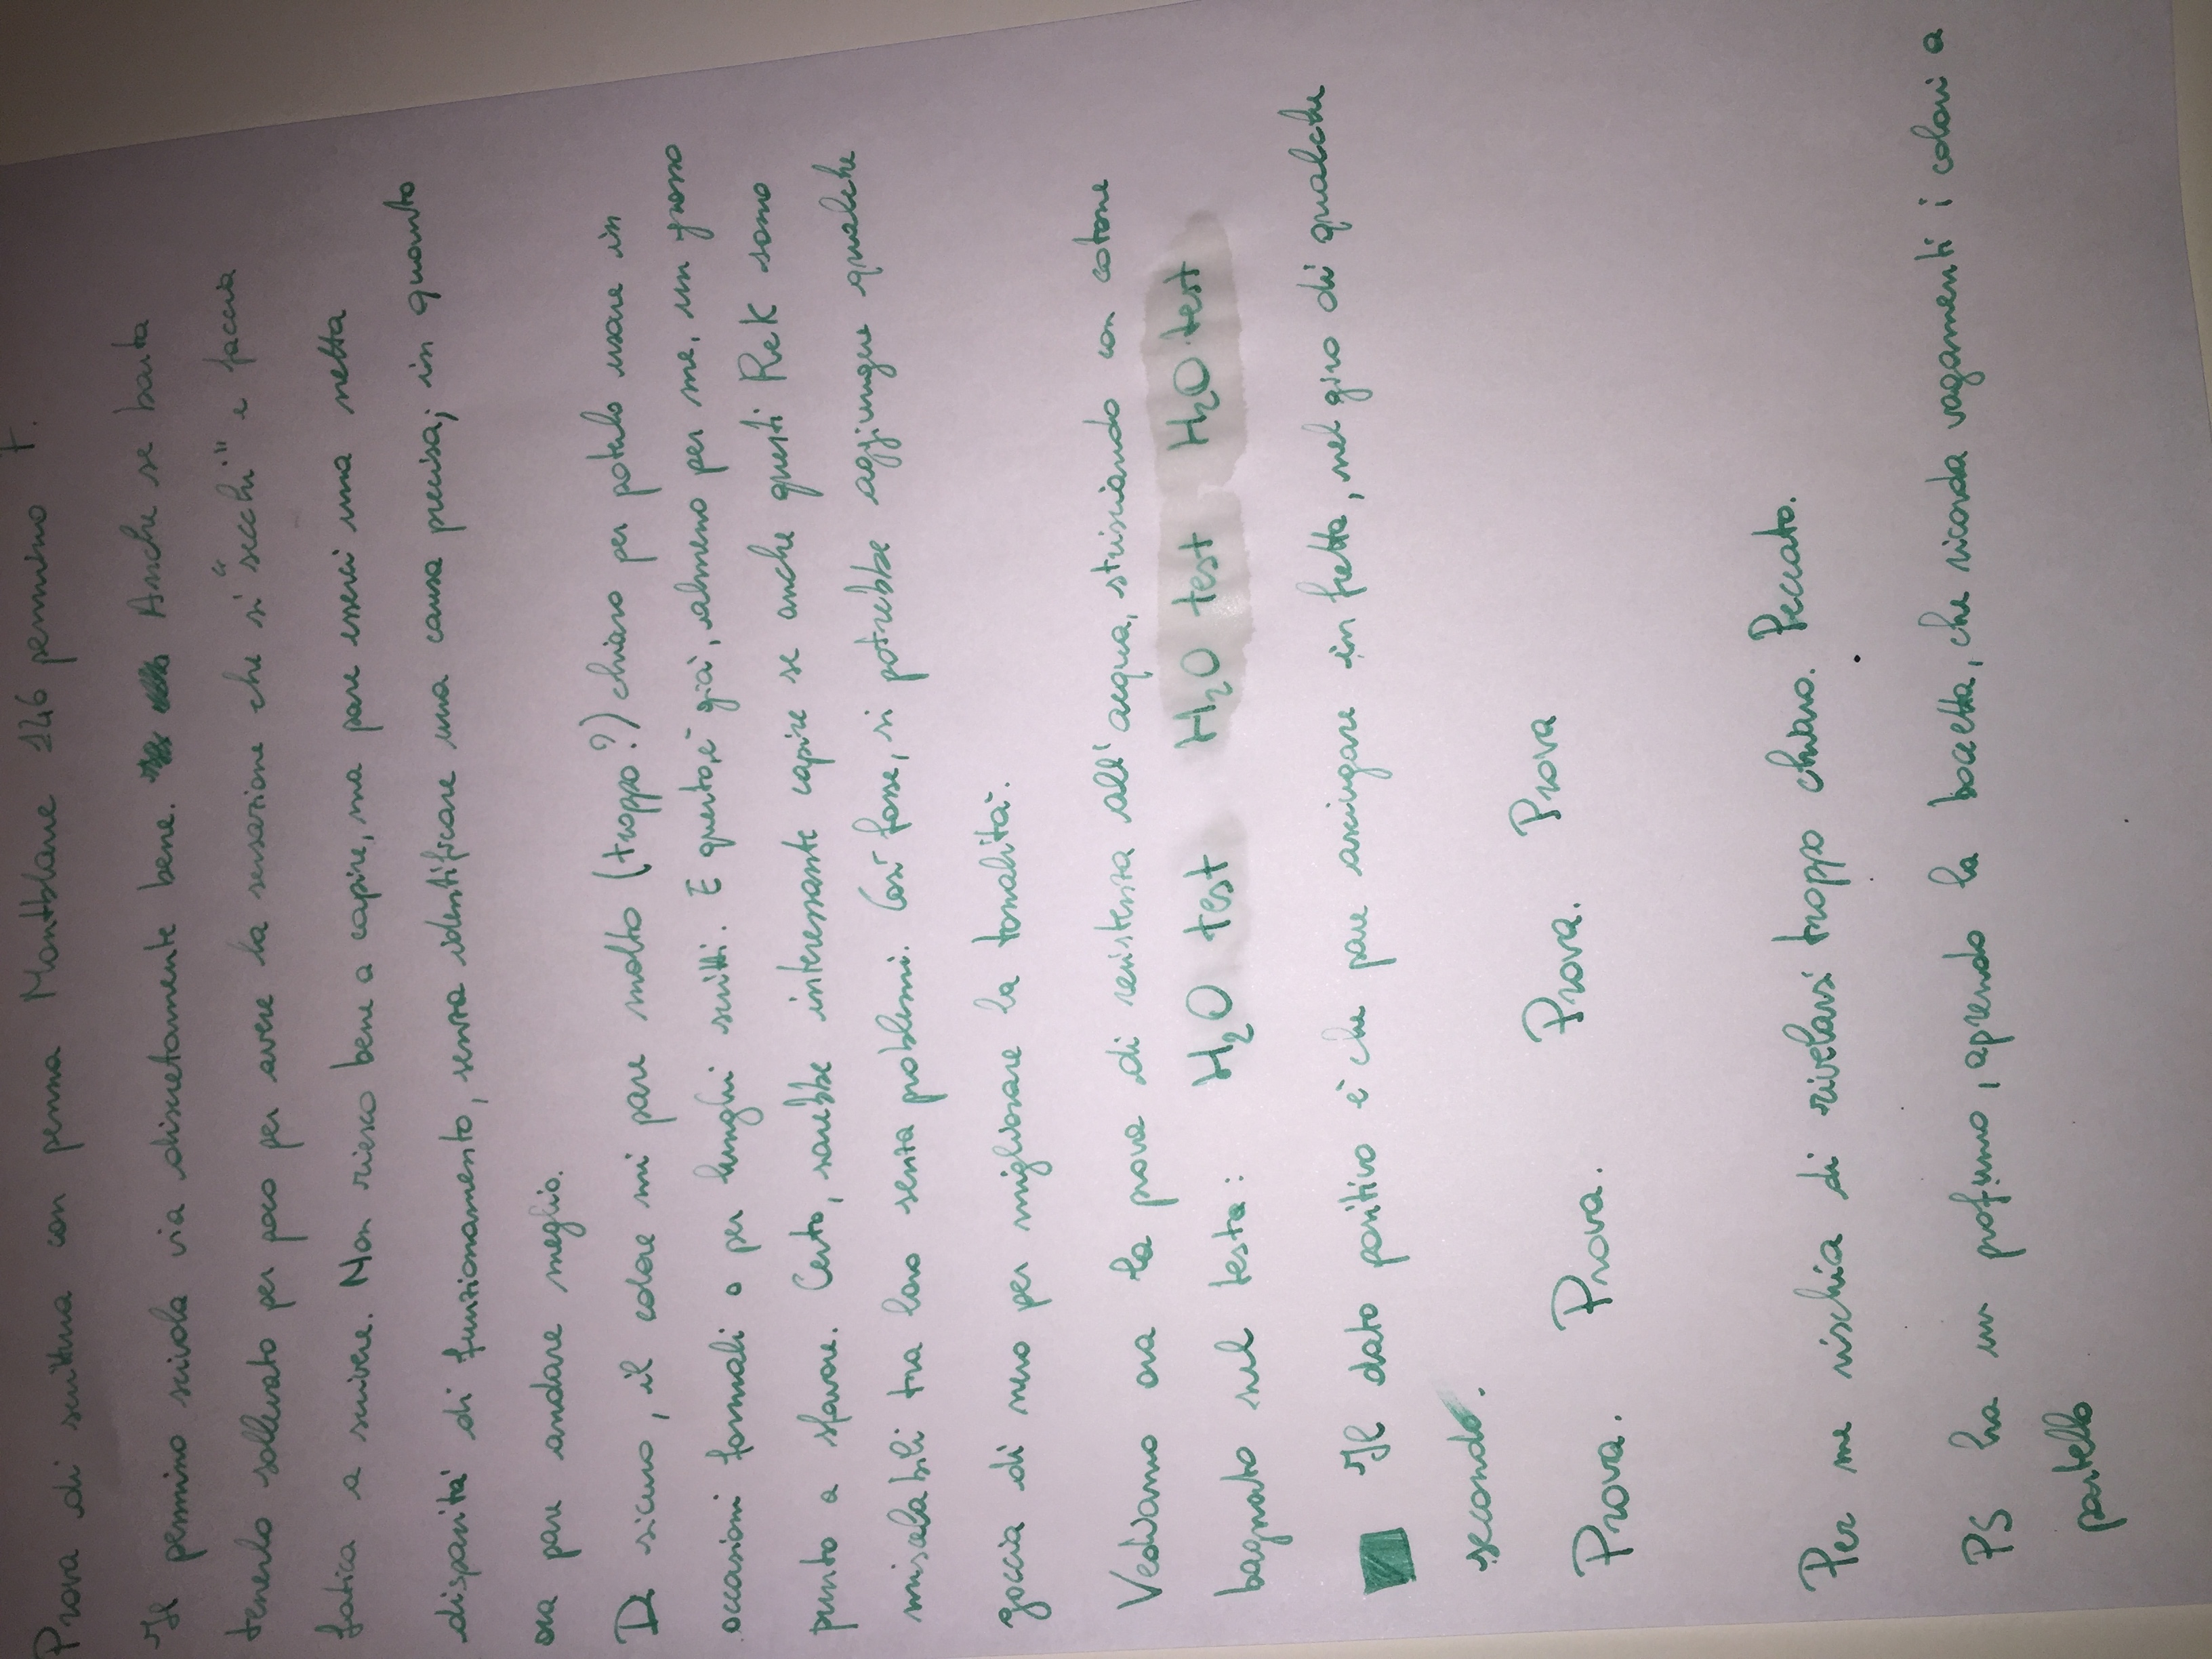 Prova di scrittura con penna Montblanc 146 pennino F.
Il pennino scivola via discretamente bene. Anche se basta
tenerlo sollevato per poco per avere la sensazione che si "secchi" e faccia
fatica a scrivere. Non riesco bene a capire, ma pare esserci una netta
disparità di funzionamento, senza identificare una causa precisa; in quanto
ora pare andare meglio.
Di sicuro, il colore mi pare molto (troppo?) chiaro per poterlo usare in
occasioni formali o per lunghi scritti. E questo, è già, almeno per me, un grosso
punto a sfavore. Certo, sarebbe interessante capire se anche questi R&K sono
miscelabili tra loro senza problemi. Così fosse, si potrebbe aggiungere qualche
goccia di nero per migliorare la tonalità.
Vediamo ora la prova di resistenza all'acqua, strisciando con cotone
bagnato sul testo: H2O test H2O test H2O test
Il dato positivo è che pare asciugare in fretta, nel giro di qualche
secondo.
Prova. Prova. Prova. Prova
Per me rischia di rivelarsi troppo chiaro. Peccato.
PS ha un profumo, aprendo la boccetta, che ricorda vagamenti i colori a
pastello